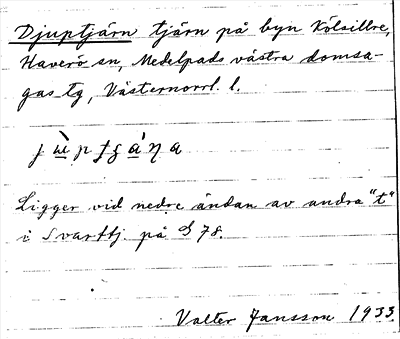 Djuptjärn tjärn på byn Kölsillre,
Haverö sn, Medelpads västra domsa-
gas tg, Västernorrl. l.
Ligger vid nedre ändan av andra "t"
i Svarttj. på G 78.
Valter Jansson 1933